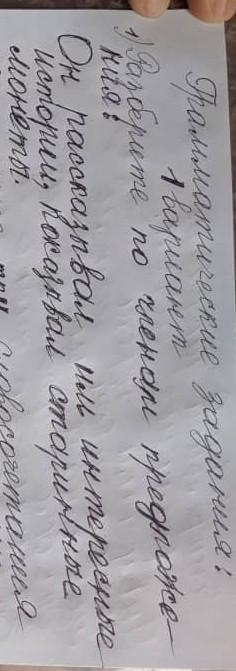 Грамматические задания:
1 вариант
1) Разберите по членам предложе-
ния:
Он рассказывал им интересные
истории, показывал старинные
монеты.
словосочетания